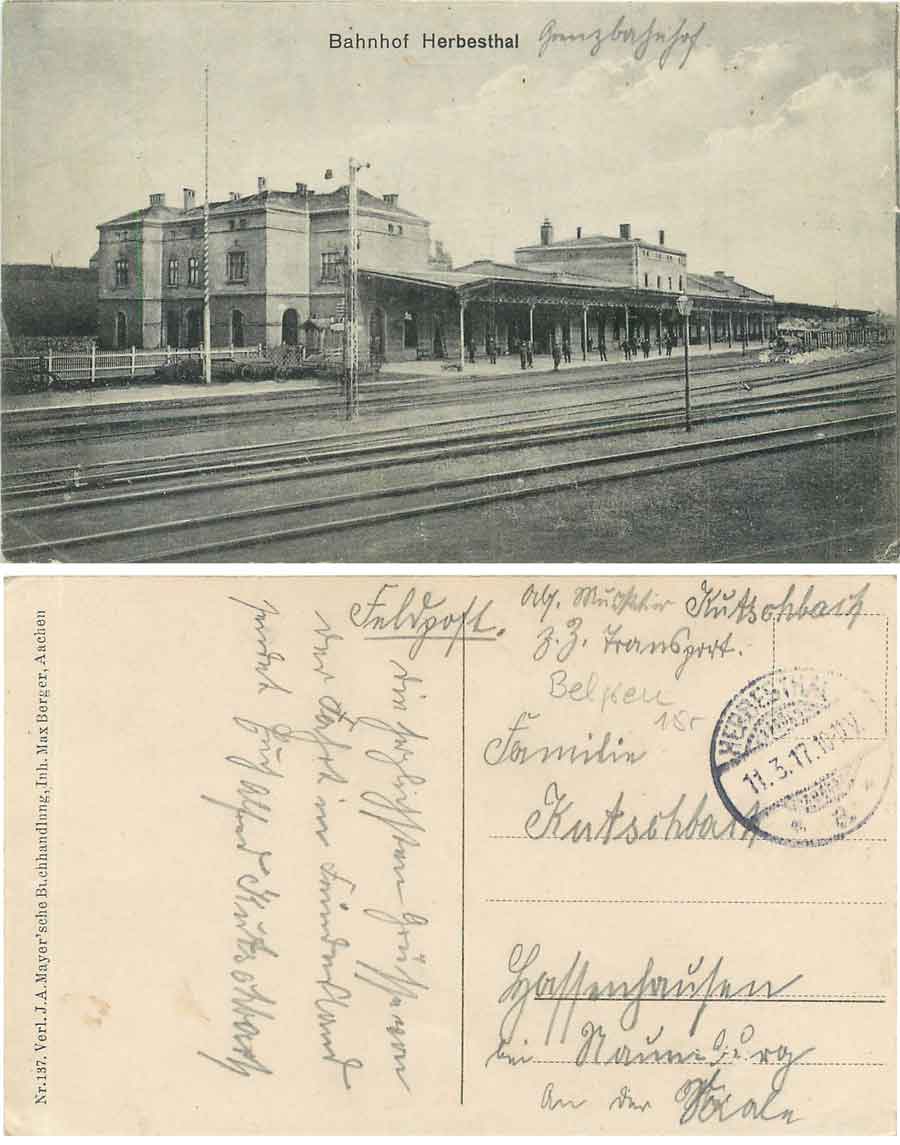 Bahnhof Herbesthal Grenzbahnhof.
Feldpost.
Abs. Musketier Kutschbach
z. Z. Transport.
Belgien
Familie
Kutschbach
Hassenhausen
bei Naumburg
an der Saale
HERBESTHAL
11.3.17.10-11V.
* a.
die herzlichsten Grüsse von
der Fahrt in Feindesland
sendet Euch Alfred Kutschbach
Nr.137. Verl. J.A.Mayer'sche Buchhandlung, Inh. Max Berger, Aachen